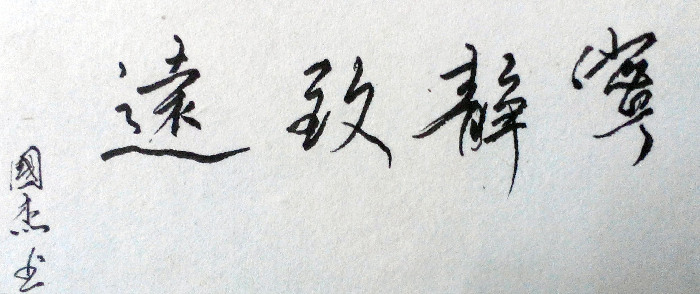 寧靜致遠
國杰书